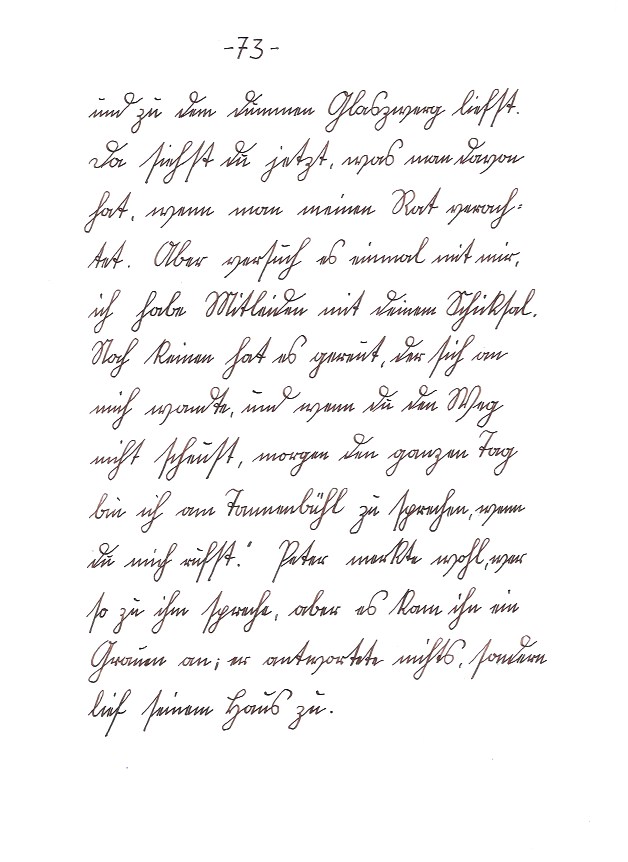 -73-
und zu dem dummen Glaszwerg liefst.
Da siehst du jetzt, was man davon
hat, wenn man meinen Rat verach=
tet. Aber versuch es einmal mit mir,
ich habe Mitleiden mit deinem Schicksal.
Noch keinen hat es gereut, der sich an
mich wandte, und wenn du den Weg
nicht scheust, morgen den ganzen Tag
bin ich am Tannenbühl zu sprechen, wenn
du mich rufst.“ Peter merkte wohl, wer
so zu ihm spreche, aber es kam ihn ein
Grauen an; er antwortete nichts, sondern
lief seinem Haus zu.